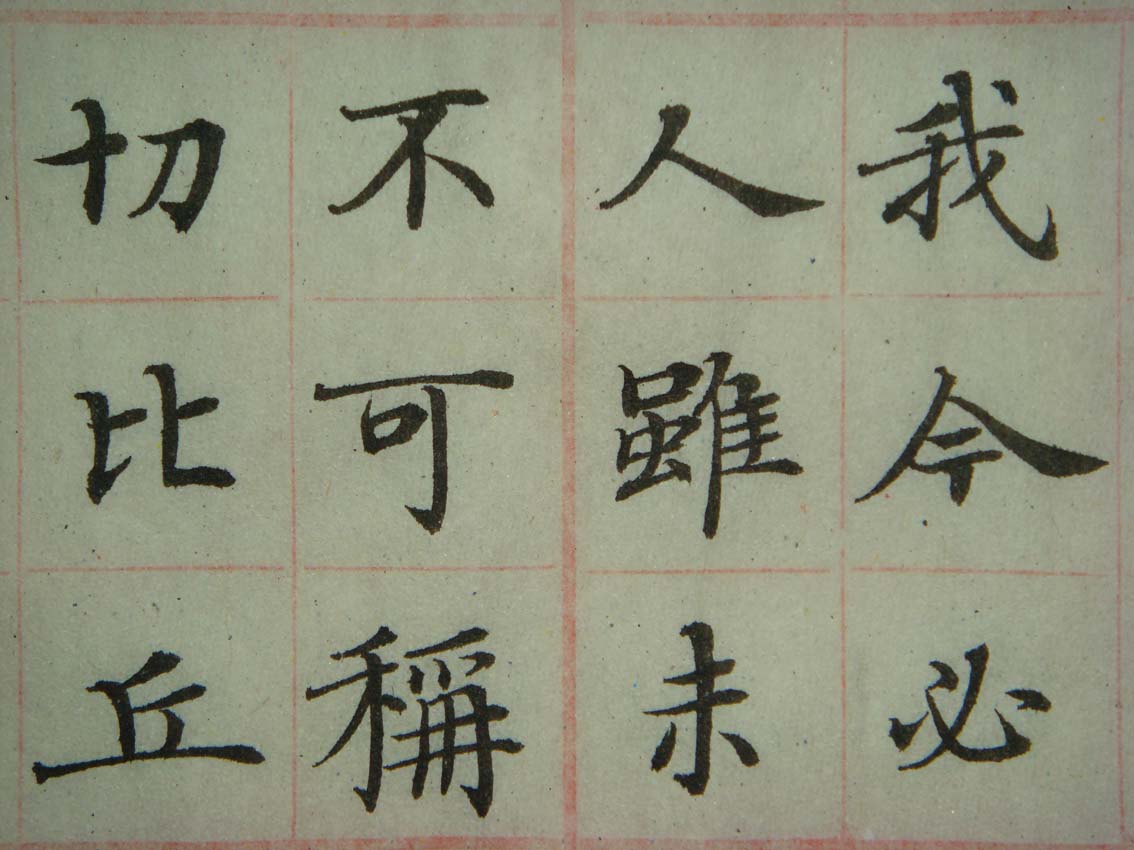 我今必
人雖未
不可稱
切比丘